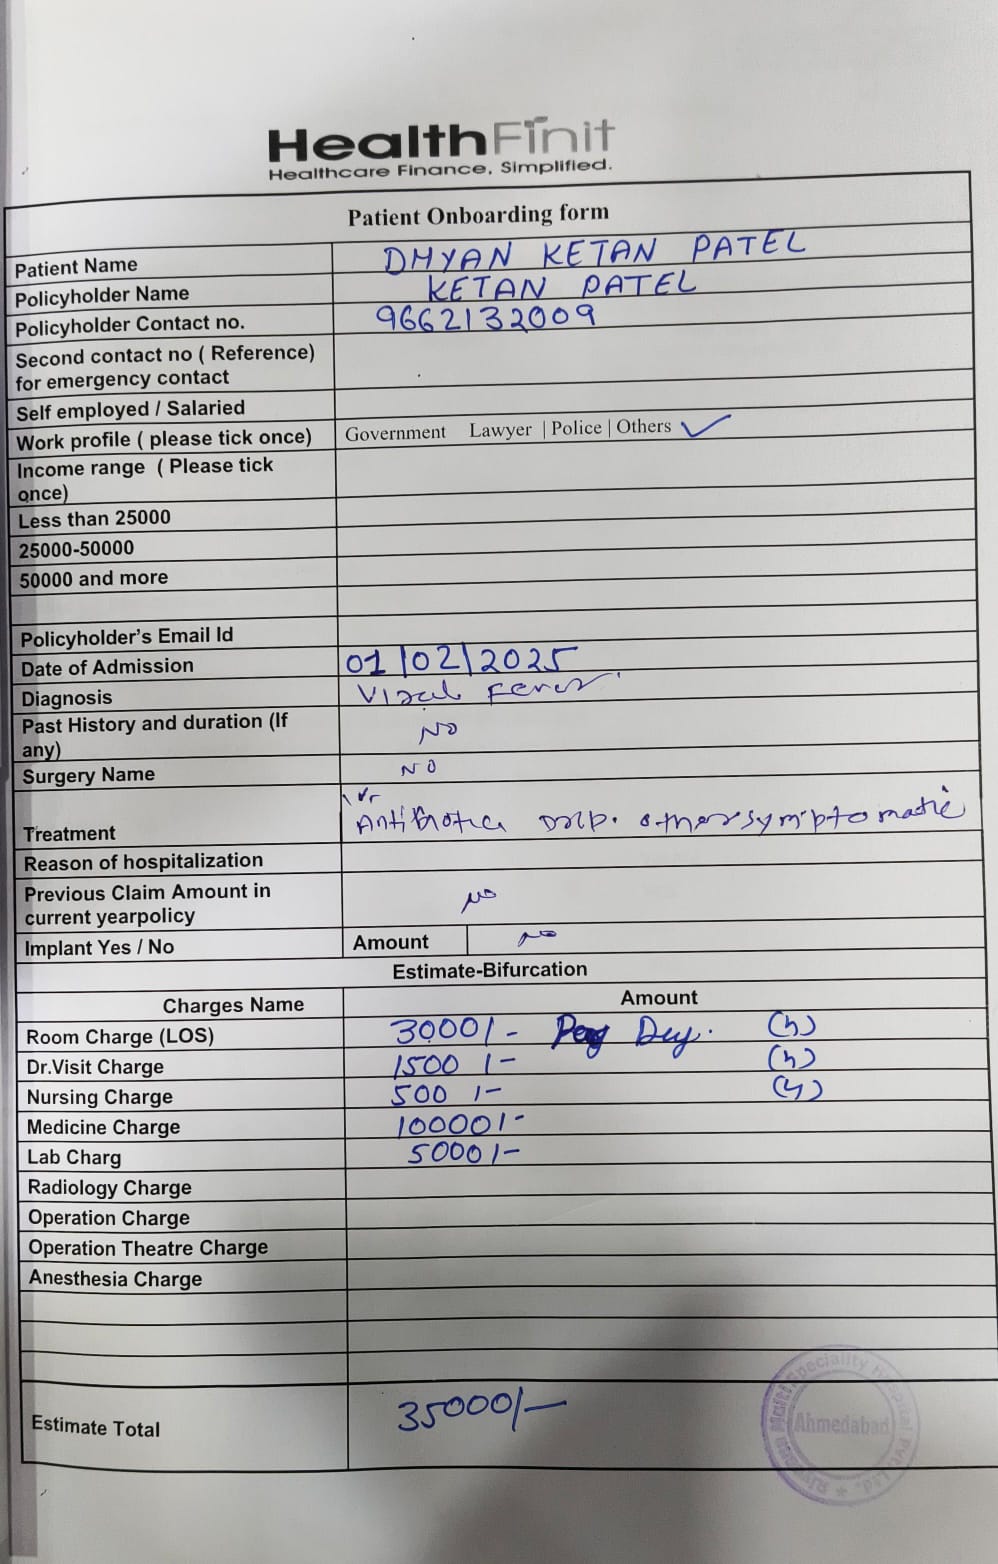 HealthFinit
Healthcare Finance, Simplified.
Patient Onboarding form
Patient Name DHYAN KETAN PATEL
Policyholder Name KETAN PATEL
Policyholder Contact no. 9662132009
Second contact no ( Reference)
for emergency contact
Self employed / Salaried
Work profile ( please tick once) Government Lawyer | Police | Others ✓
Income range ( Please tick
once)
Less than 25000
25000-50000
50000 and more
Policyholder's Email Id
Date of Admission 01/02/2025
Diagnosis Viral Fever.
Past History and duration (If
any) NO
Surgery Name NO
Treatment Antibiotics Drip. other symptomatic
Reason of hospitalization
Previous Claim Amount in
current yearpolicy NO
Implant Yes / No Amount NO
Estimate-Bifurcation
Charges Name Amount
Room Charge (LOS) 3000/- Per Day.
Dr.Visit Charge 1500/-
Nursing Charge 500/-
Medicine Charge 10000/-
Lab Charg 5000/-
Radiology Charge
Operation Charge
Operation Theatre Charge
Anesthesia Charge
Estimate Total 35000/-
Multi Speciality Hospital Pvt. Ltd.
Ahmedabad